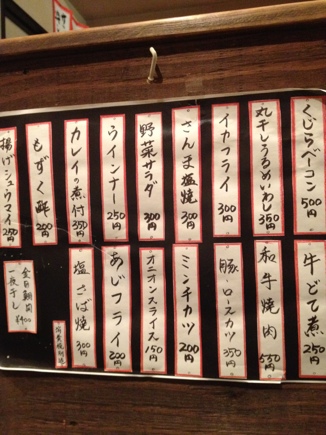 くじらベーコン 500円
丸干しうるめいわし 350円
イカフライ 300円
さんま塩焼 300円
野菜サラダ 300円
ウインナー 250円
カレイの煮付 350円
もずく酢 200円
揚げシュウマイ 250円
牛どて煮 200円
和牛焼肉 550円
豚ロースカツ 350円
ミンチカツ 200円
オニオンスライス 150円
あじフライ 200円
塩さば焼 300円
消費税別途
金目鯛開
一夜干し ¥400